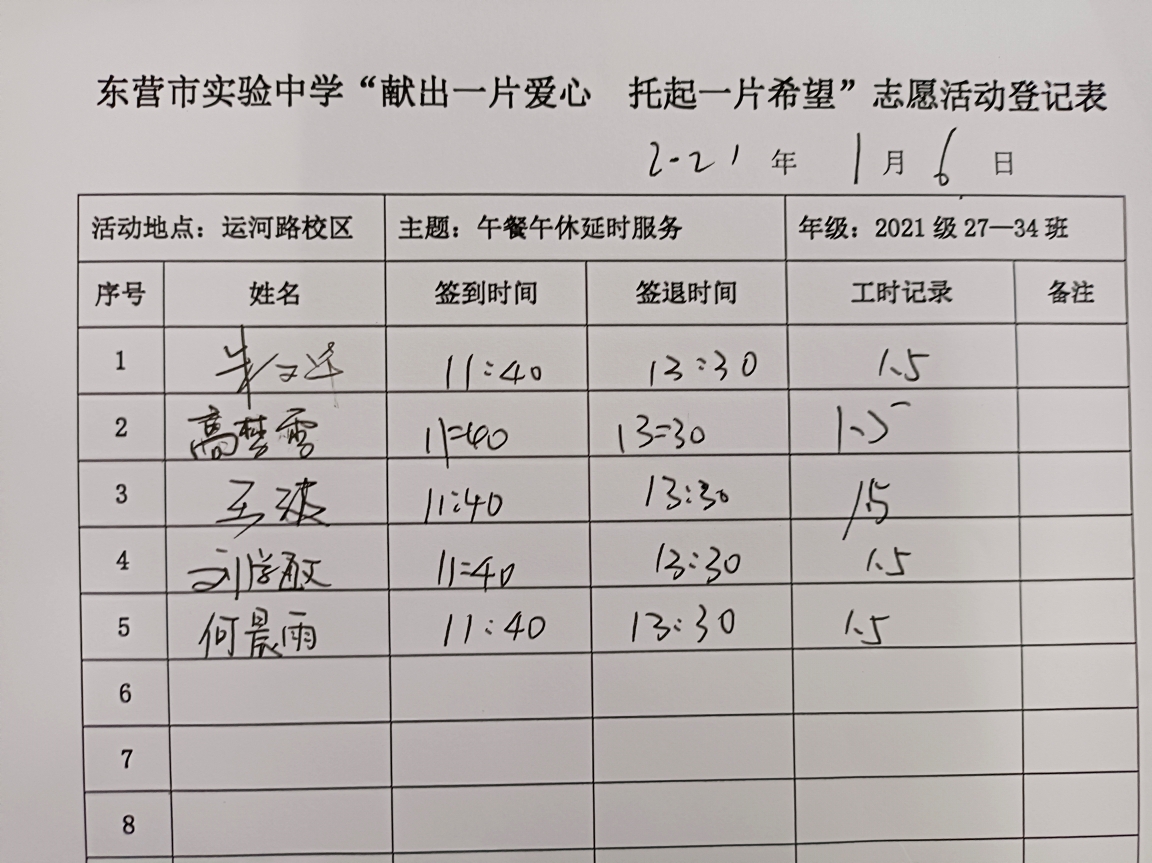 东营市实验中学“献出一片爱心 托起一片希望”志愿活动登记表
2021 年 1 月 6 日
活动地点：运河路校区 主题：午餐午休延时服务 年级：2021 级 27—34 班
序号 姓名 签到时间 签退时间 工时记录 备注
1 11:40 13:30 1.5
2 高梦雪 11:40 13:30 1.5
3 王波 11:40 13:30 1.5
4 刘学敏 11:40 13:30 1.5
5 何晨雨 11:40 13:30 1.5
6
7
8